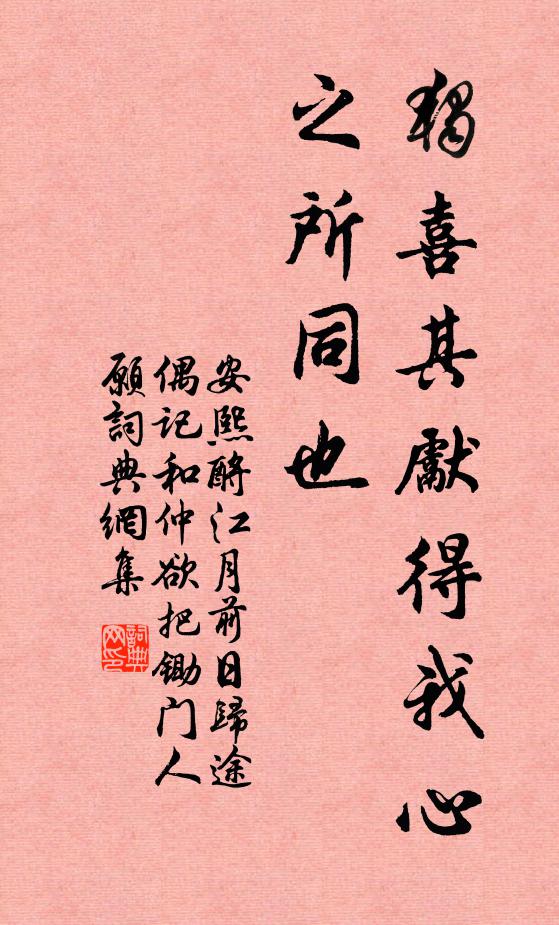 獨喜其獻得我心
之所同也
安熙酹江月前日歸途
偶記和仲欲把鋤门人
願詞典網集
詞典
网印